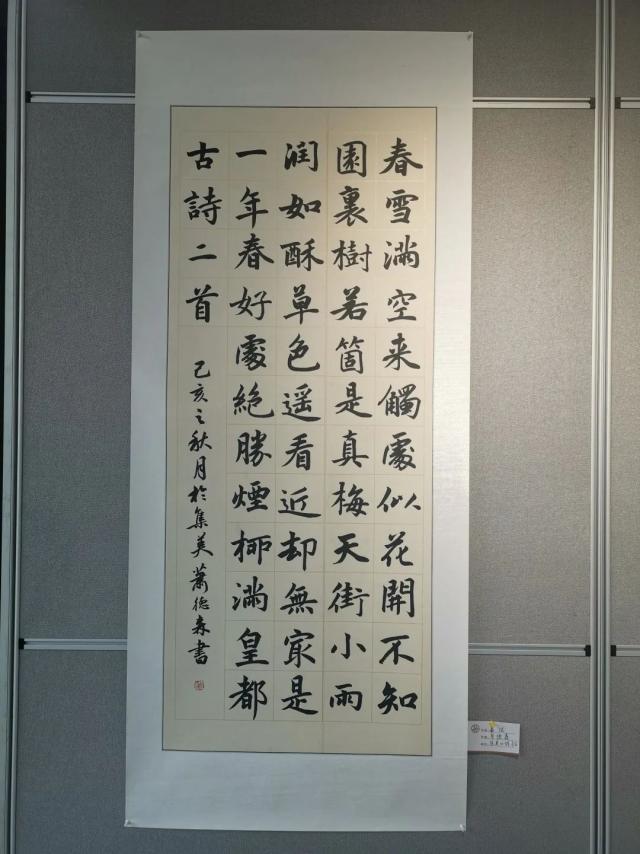 春雪满空来觸處似花開不知
園裏樹若箇是真梅天街小雨
潤如酥草色遥看近却無㝡是
一年春好處絶勝煙桞满皇都
古詩二首
己亥之秋月於集美蕭德森書